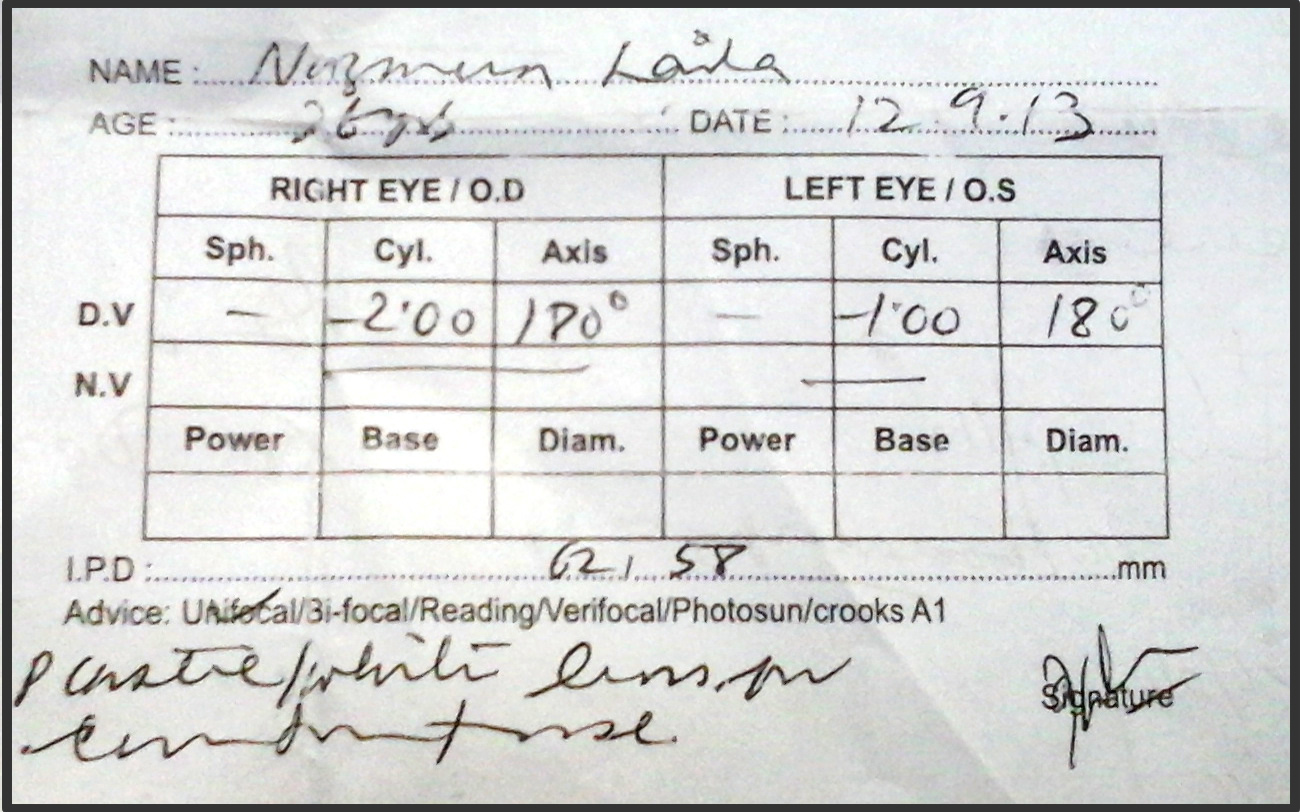 NAME : Nazmun Laila
AGE : 36 yrs DATE : 12.9.13
RIGHT EYE / O.D LEFT EYE / O.S
Sph. Cyl. Axis Sph. Cyl. Axis
D.V — -2.00 180° — -1.00 180°
N.V — —
Power Base Diam. Power Base Diam.
I.P.D : 62, 58 mm
Advice: Unifocal/Bi-focal/Reading/Verifocal/Photosun/crooks A1
Plastic/white lens for
constant use.
Signature